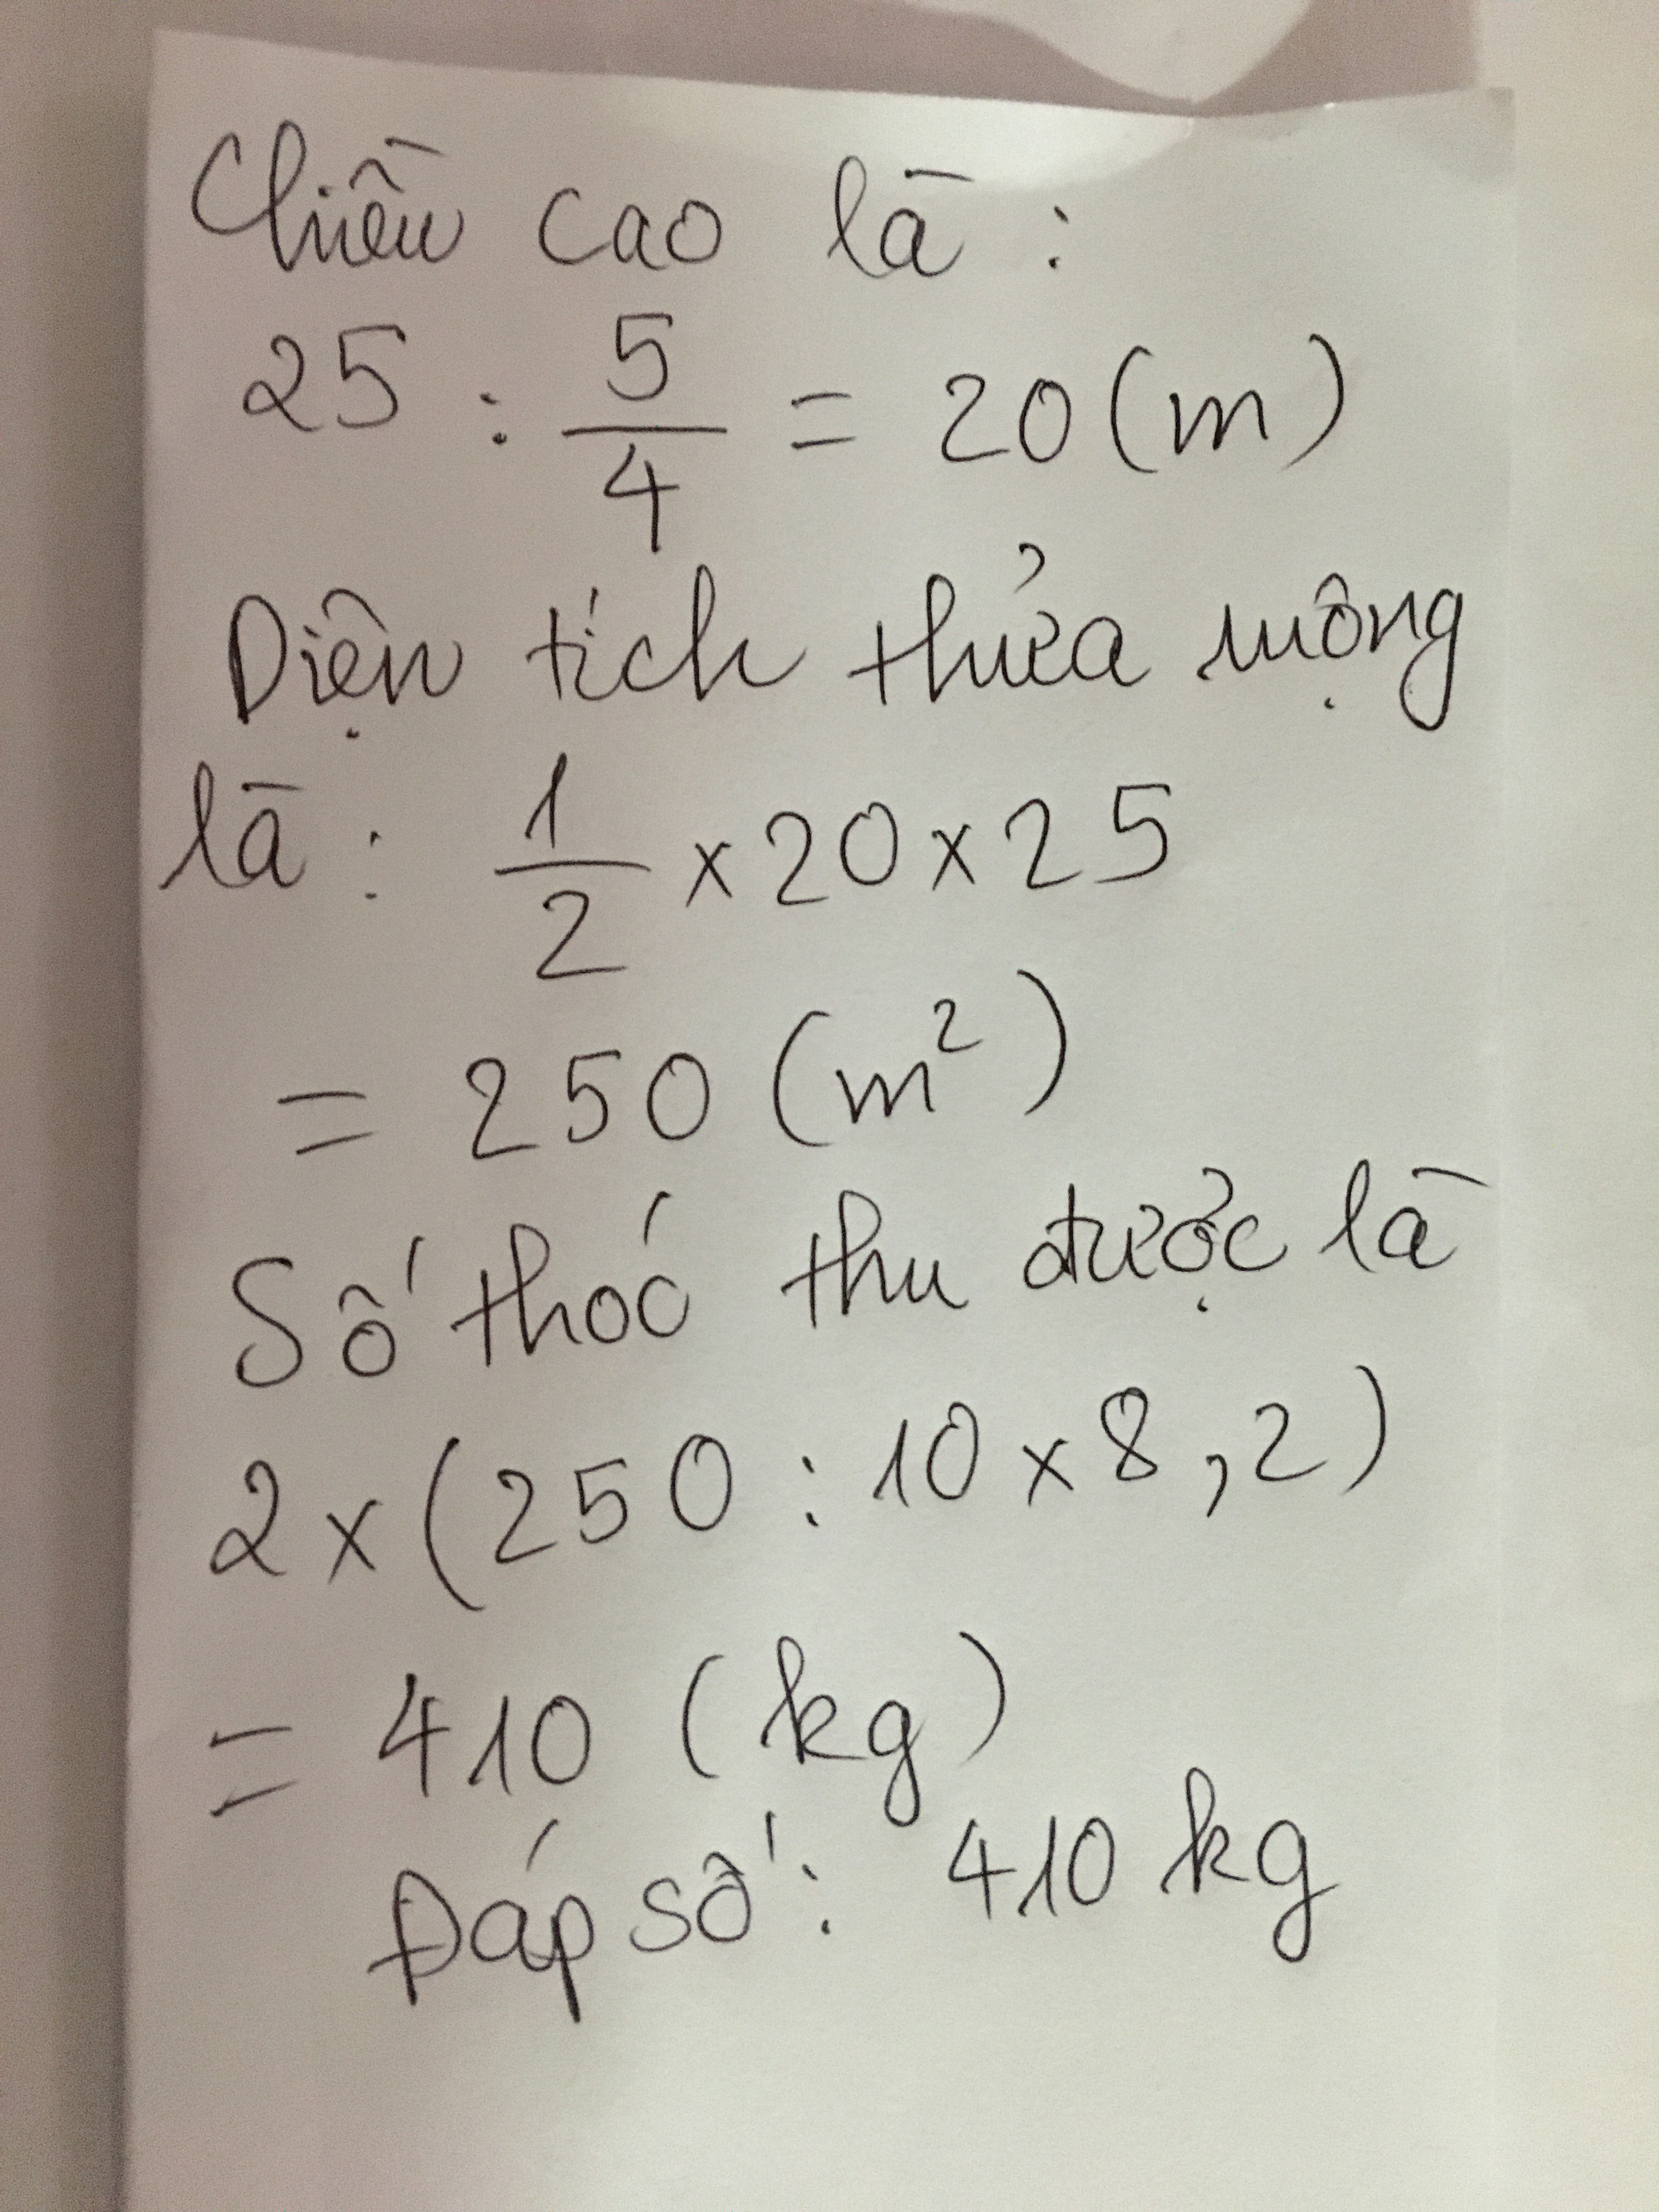 Chiều cao là :
25 : 5/4 = 20 (m)
Diện tích thửa ruộng
là : 1/2 x 20 x 25
= 250 (m²)
Số thóc thu được là
2 x (250 : 10 x 8,2)
= 410 (kg)
Đáp số : 410 kg